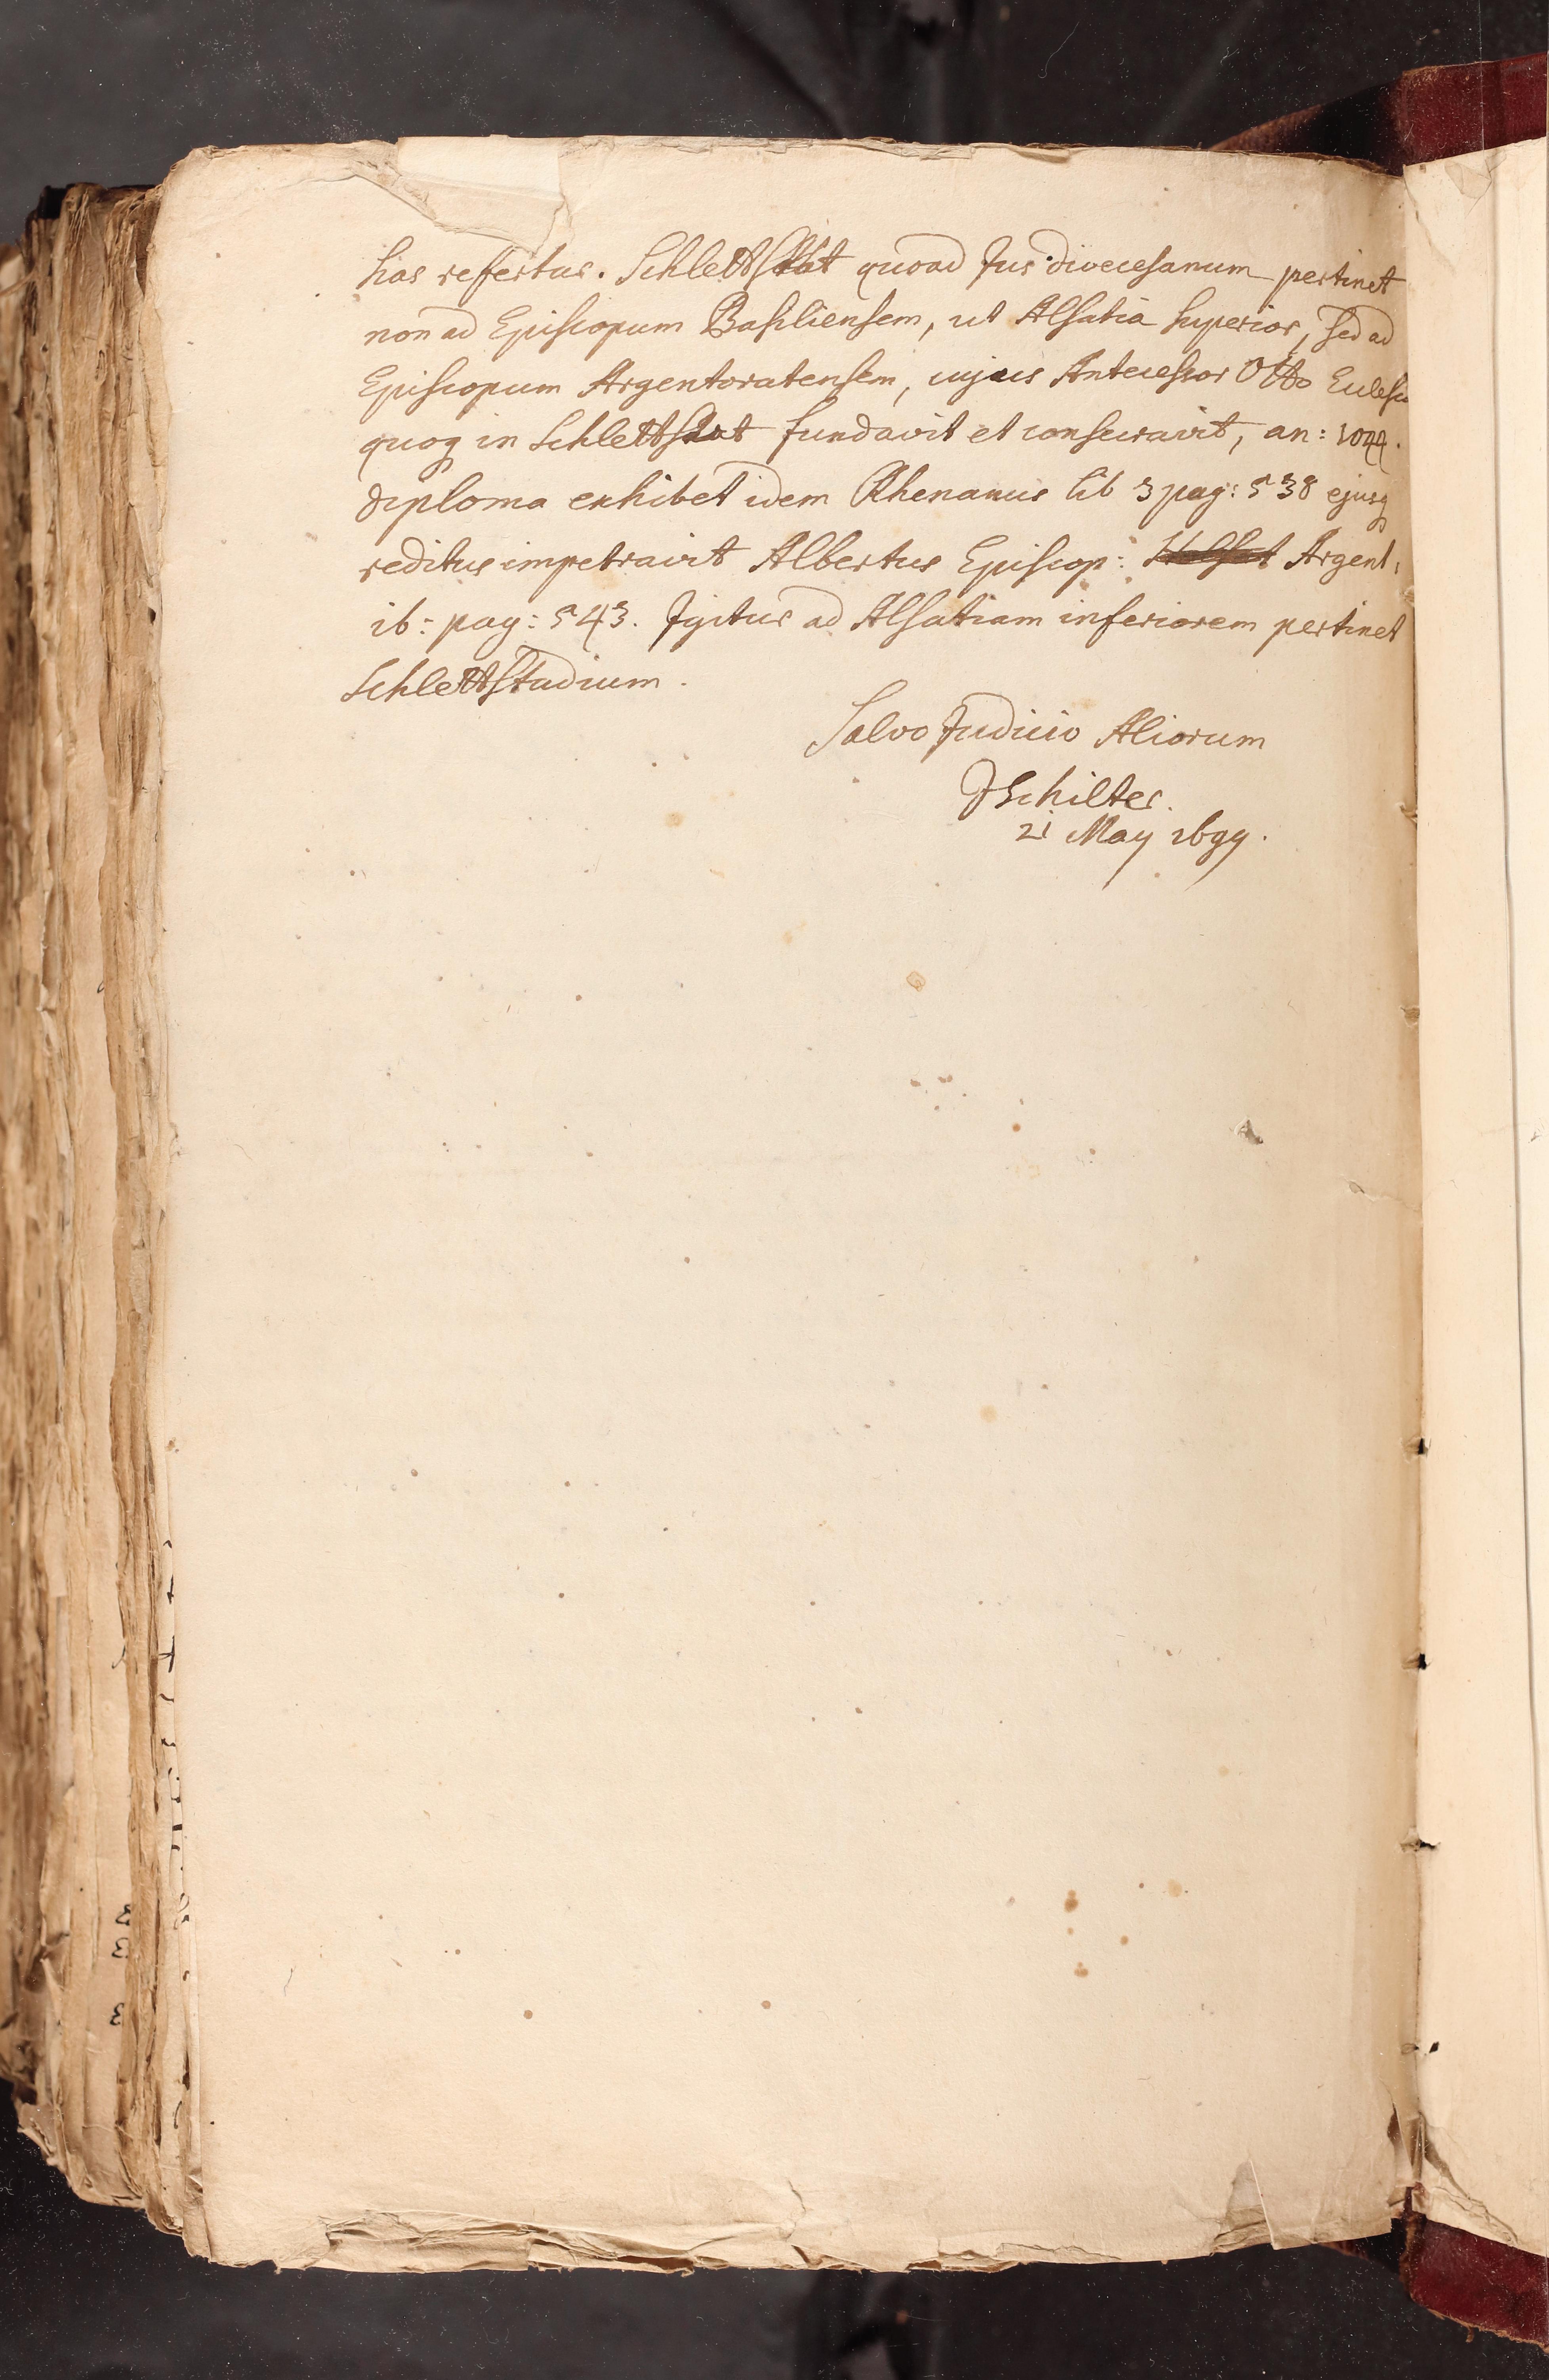 has refertur. Schlettstat quoad Jus dioecesanum pertinet
non ad Episcopum Basiliensem, ut Alsatia superior, sed ad
Episcopum Argentoratensem, cujus Antecessor Otto Ecclesia
quoq in Schlettstat fundavit et consecravit, an: 1094.
diploma exhibet idem Rhenanus lib 3 pag: 538 ejusq
reditus impetravit Albertus Episcop: Argent.
ib: pag: 543. Igitur ad Alsatiam inferiorem pertinet
Schlettstadium.
Salvo Judicio Aliorum
JSchilter.
21 May 1699.